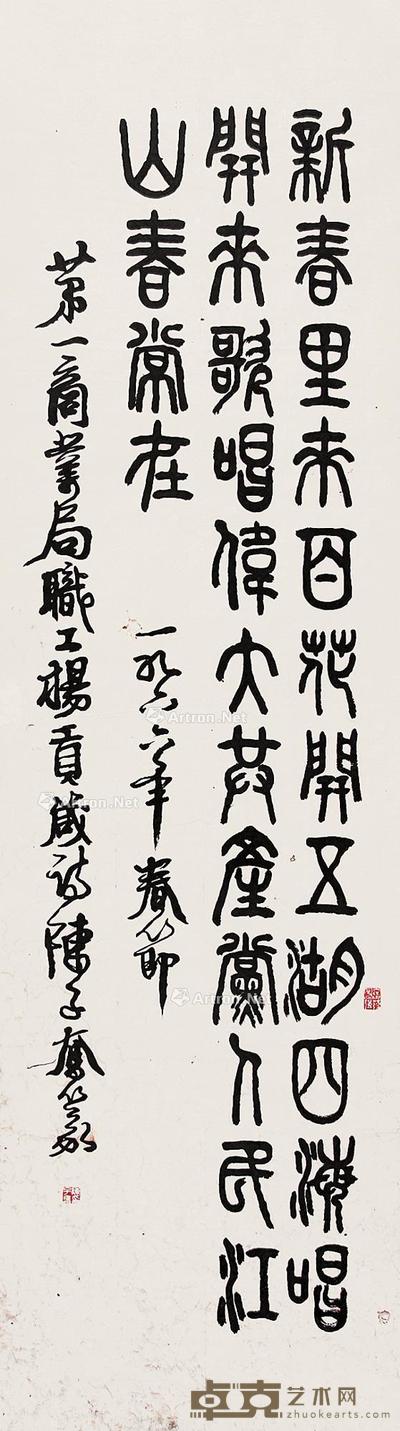 新春里来百花開五湖四海唱
開来歌唱偉大共產黨人民江
山春常在
一九六六年春節
第一商業局職工楊貢詩陳子奮篆
Artron.Net
Artron.Net
Artron.Net
卓克艺术网
zhuokearts.com